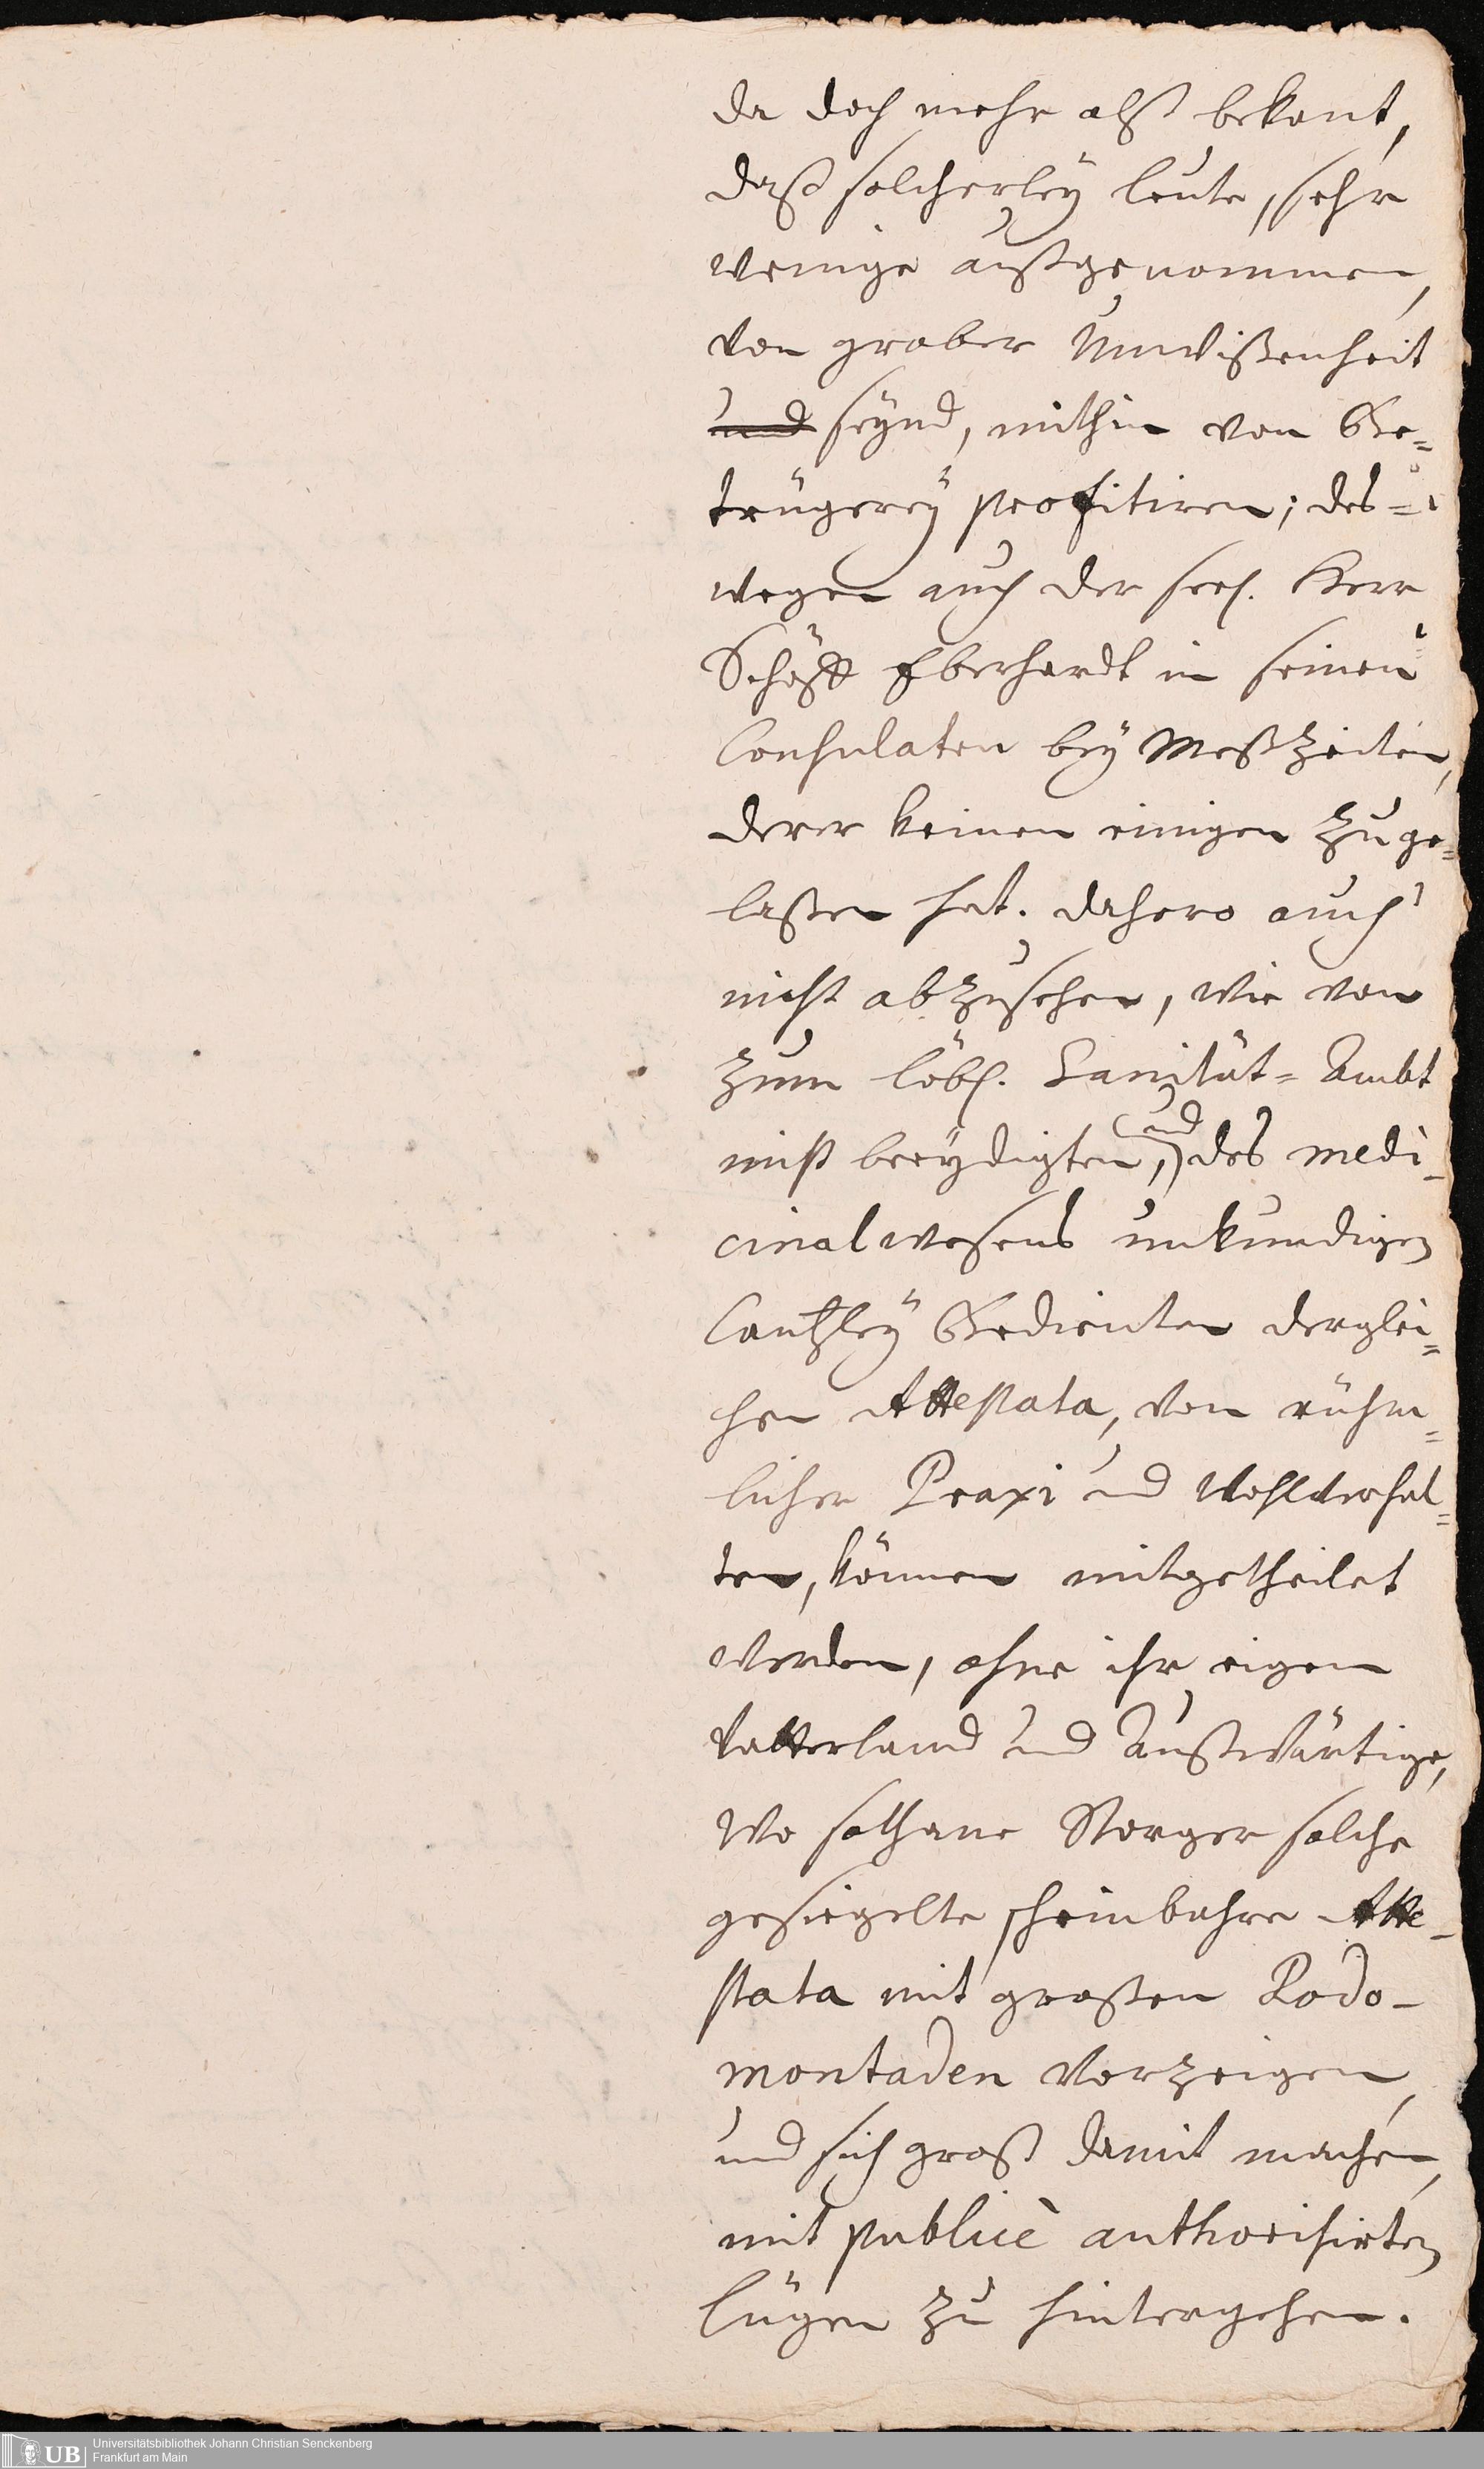 da doch mehr alß bekant,
daß solcherley leute, sehr
wenige außgenommen,
von grober Unwißenheit
und seynd, mithin von Be=
trügerey profitiren; des=
wegen auch der seel. Herr
Schöff Eberhardt in seinen
Consulaten bey Meßzeiten,
derer keinen einigen zuge=
laßen hat. dahero auch
nicht abzusehen, wie von
zum löbl. Sanität=Ambt
nicht beeydigten, und des medi-
cinal wesens unkundigen
Cantzley Bedienten derglei=
chen Attestata, von rühm=
licher Praxi und Wohlverhal=
ten, können mitgetheilet
werden, ohne ihr eigen
Vatterland und Außwärtige,
wo sothane Storger solche
gesiegelte scheinbahre Atte-
stata mit großen Rodo-
montaden vorzeigen,
und sich groß damit machen,
mit publicè authorisirten
lügen zu hintergehen.
UB Universitätsbibliothek Johann Christian Senckenberg
Frankfurt am Main